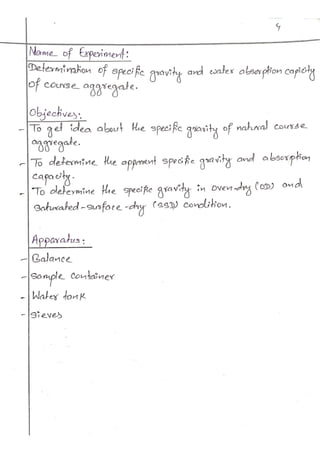 Name of Experiment:
Determination of specific gravity and water absorption capicity
of course aggregate.
Objectives:
- To get idea about the specific gravity of natural course
aggregate.
- To determine the apparent specific gravity and absorption
capacity.
- To determine the specific gravity in oven-dry (OD) and
Saturated-surface-dry (SSD) condition.
Apparatus:
- Balance
- Sample Container
- Water tank
- Sieves